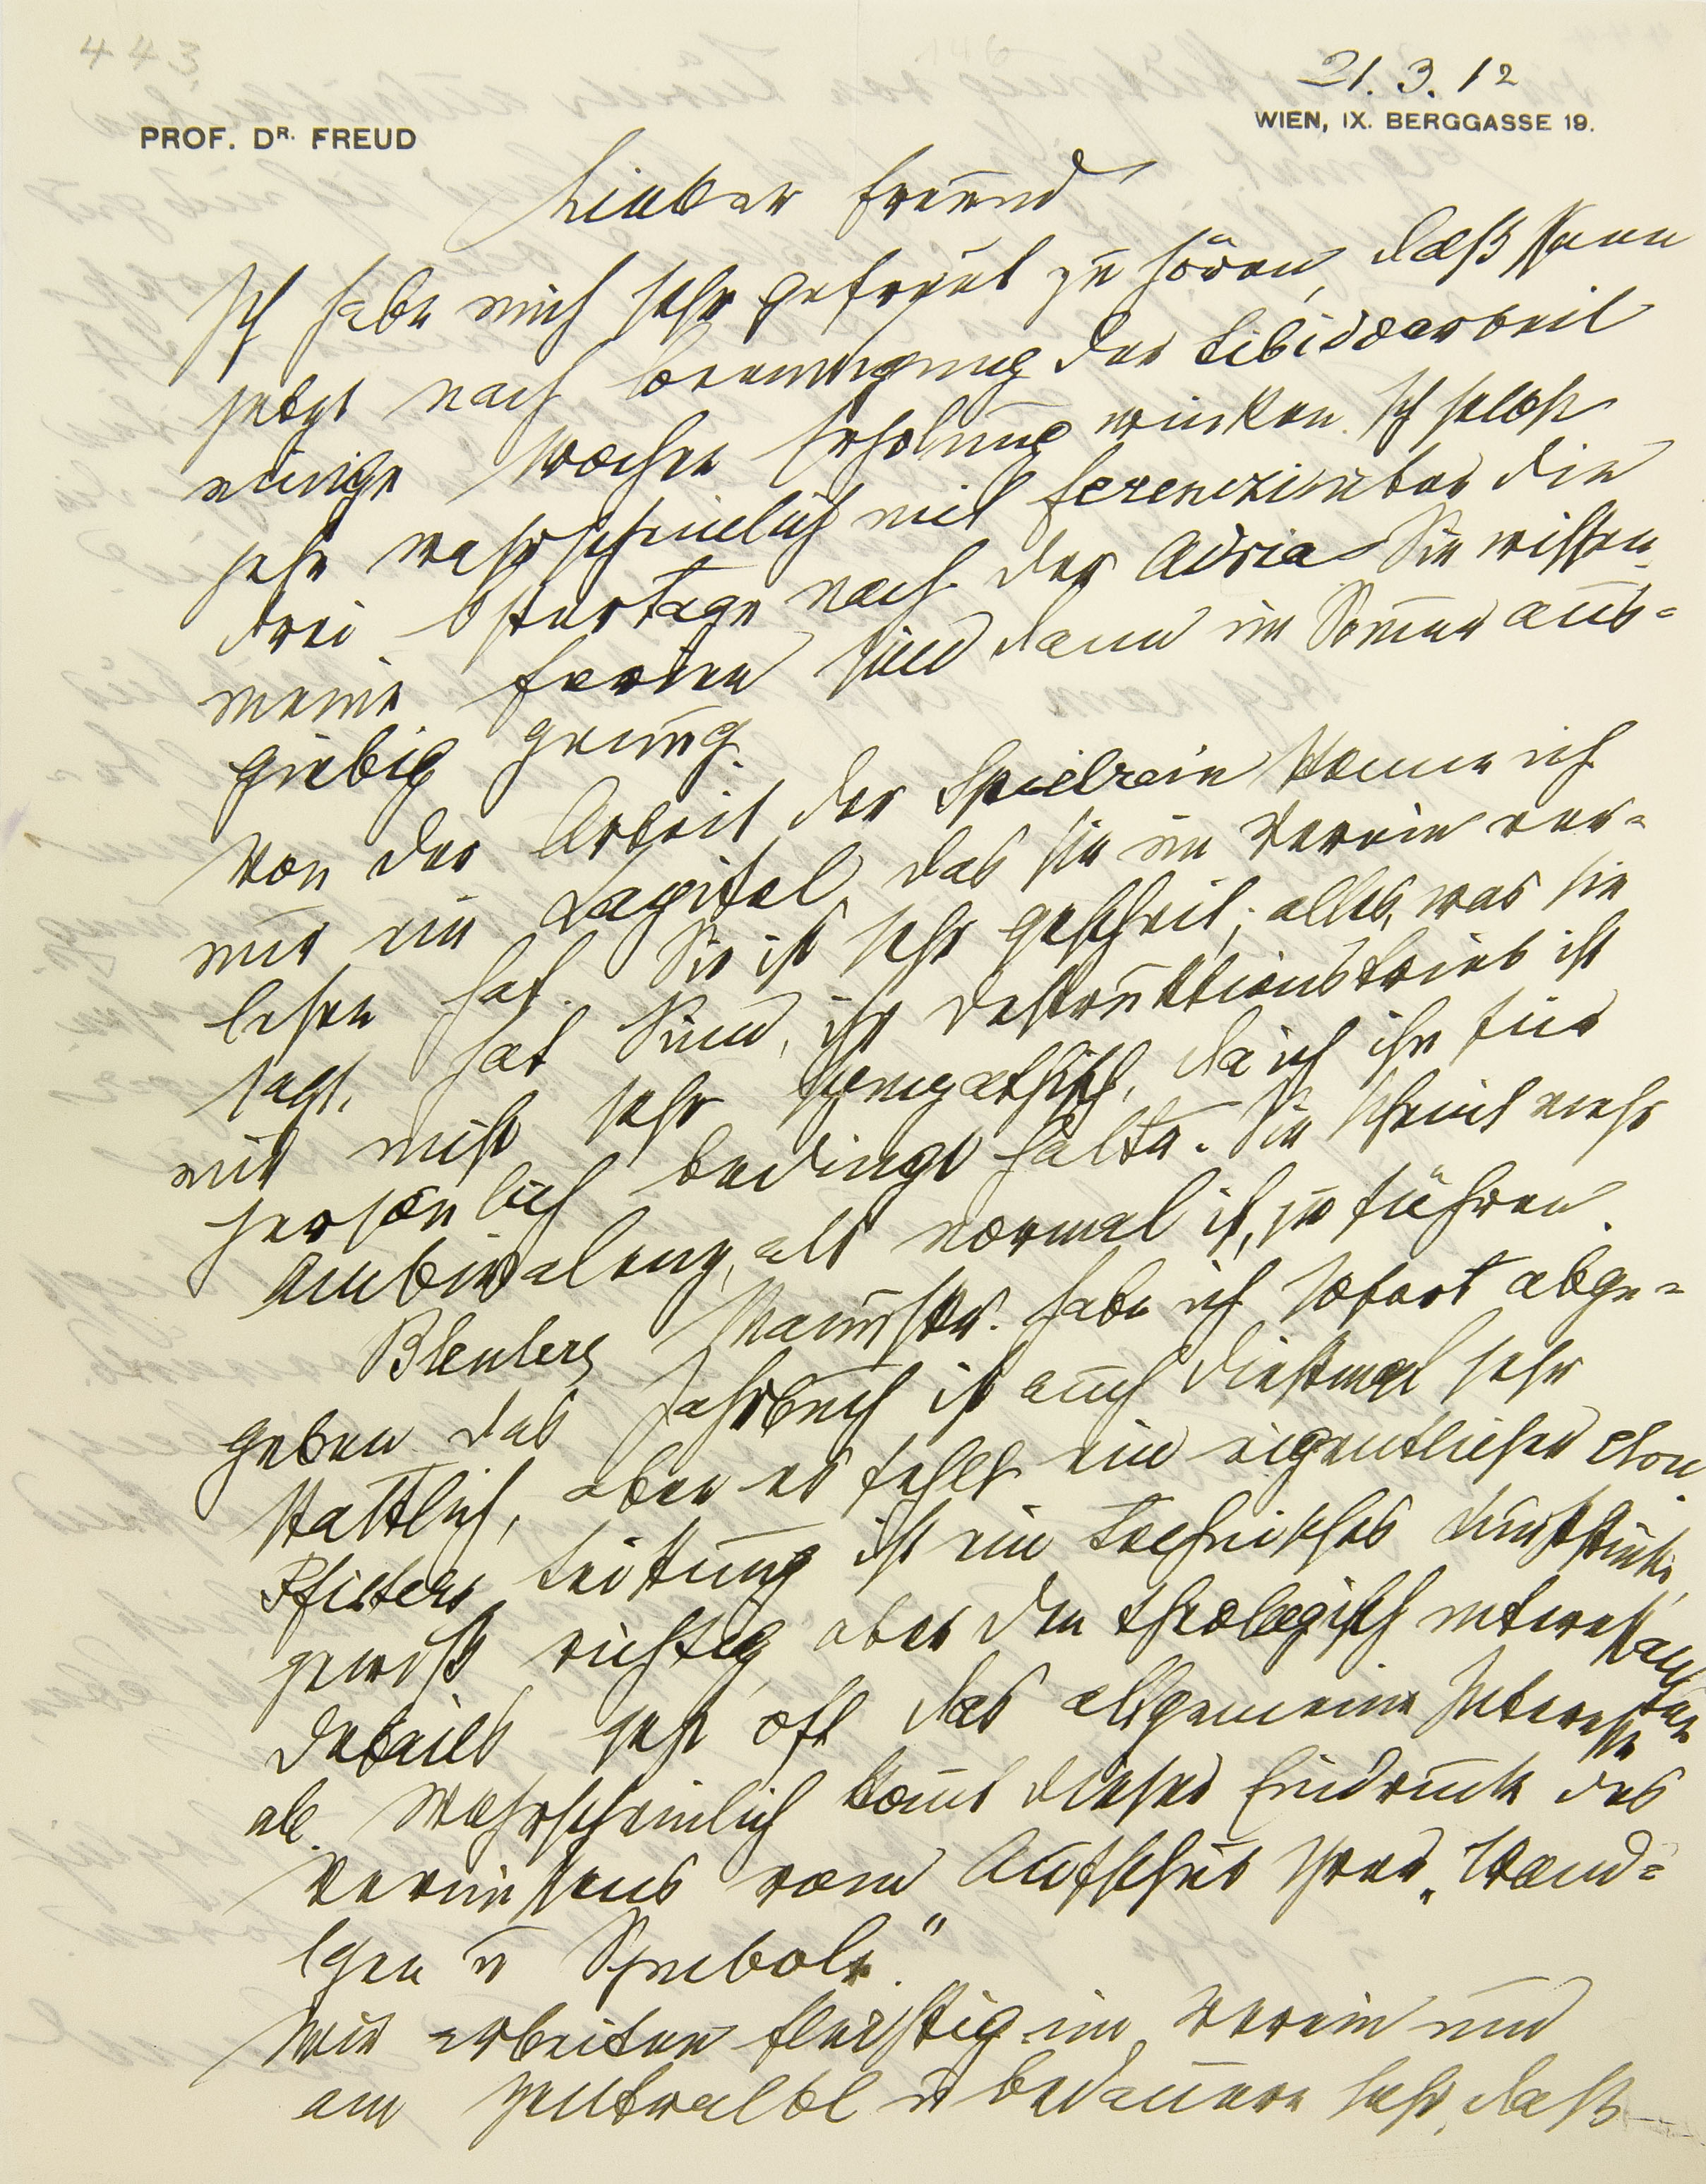 443
21. 3. 12
PROF. DR. FREUD
WIEN, IX. BERGGASSE 19.
Lieber Freund
Ich habe mich sehr gefreut zu hören, daß Ihnen
jetzt nach Beendigung der Libidoarbeit
einige Wochen Erholung winken. Ich selbst
gehe wahrscheinlich mit Ferenczi über die
drei Ostertage nach der Adria. Sie wissen,
meine Ferien sind dann im Sommer aus-
giebig genug.
Von der Arbeit der Spielrein kenne ich
nur ein Kapitel, das sie im Verein ver-
lesen hat. Sie ist sehr gescheit; alles, was sie
sagt, hat Sinn, ihr Destruktionstrieb ist
mir nicht sehr sympathisch, da ich ihn für
persönlich bedingt halte. Sie scheint mehr
Ambivalenz, als normal ist, zu führen.
Bleulers Manuskr. habe ich sofort abge-
geben. Das Jahrbuch ist auch diesmal sehr
stattlich, aber es fehlt ein eigentlicher Clou.
Pfisters Leistung ist ein technisches Kunststück,
gewiß richtig, aber den theologisch interessanten
Details geht oft das allgemeine Interesse
ab. Wahrscheinlich kommt dieser Eindruck des
Vermissens vom Aufschub Ihrer „Wand-
lgen u Symbole."
Wir arbeiten fleißig im Verein und
am Zentralbl u bedauern sehr, daß